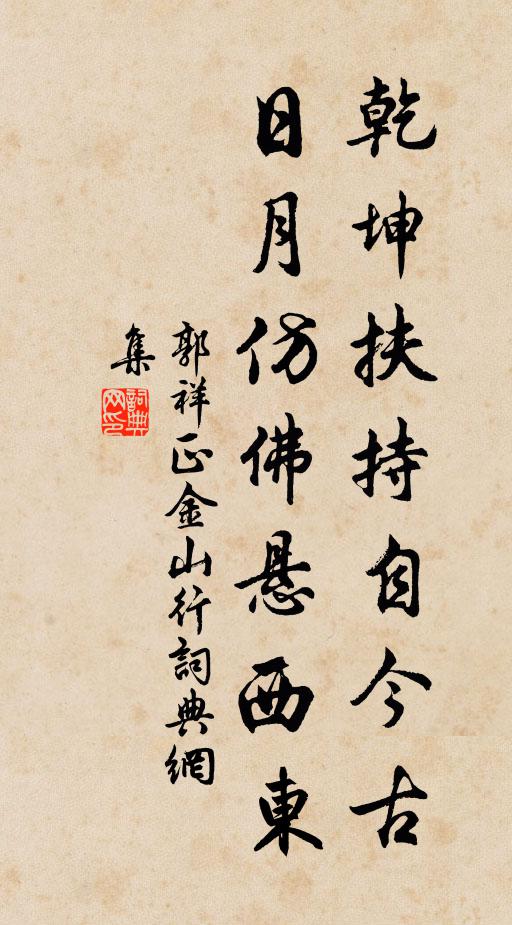 乾坤扶持自今古
日月仿佛悬西東
郭祥正金山行詞典網
集
詞典网印